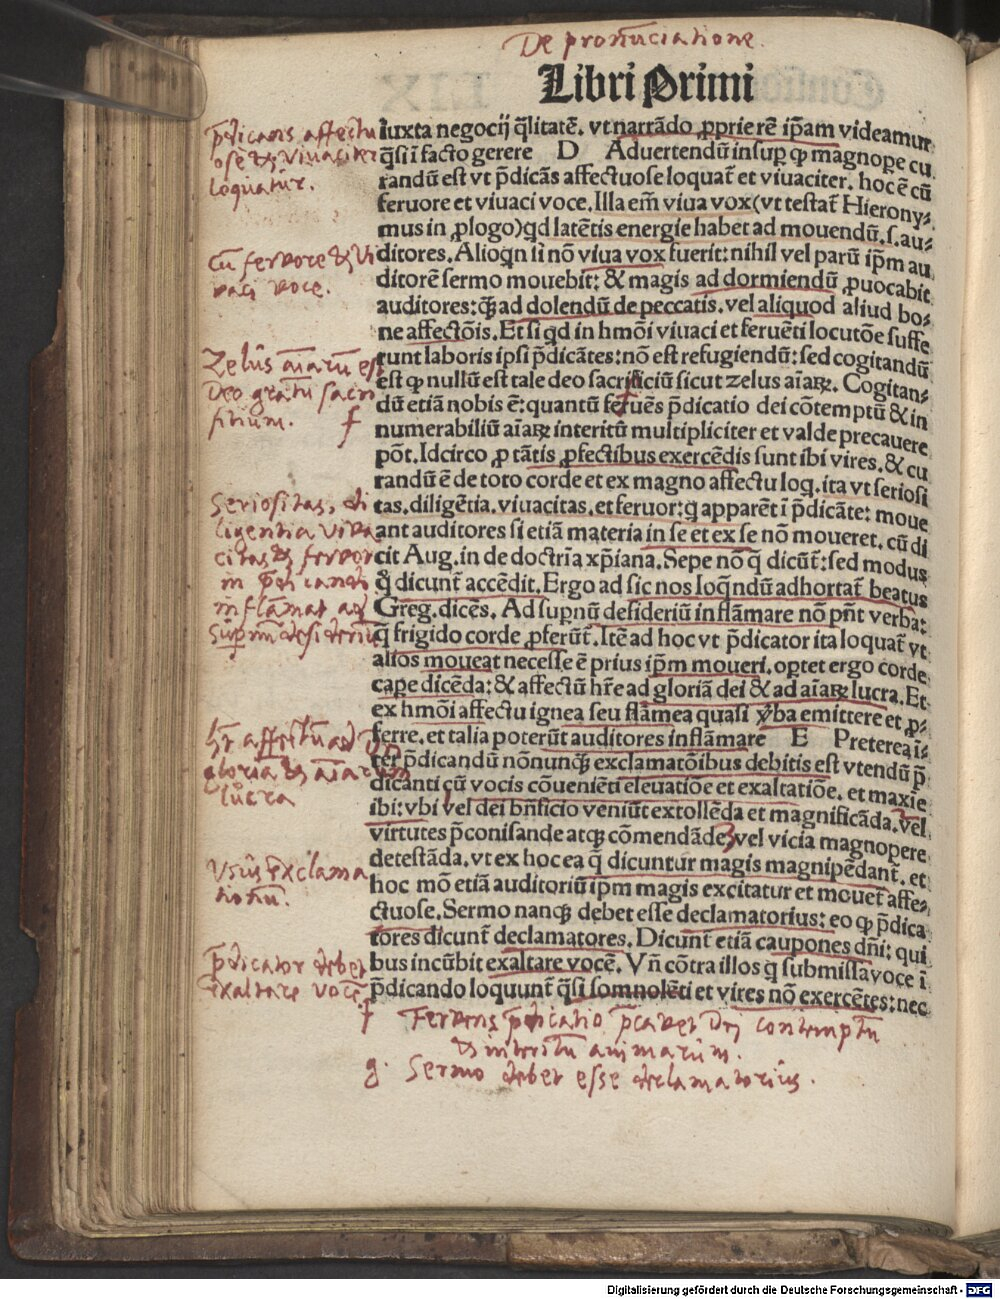 De pronu̅ciatione.
Libri Primi
iuxta negocij q̃litatẽ. vt narrãdo ꝓprie rẽ ip̃am videamur
q̃si ĩ facto gerere    D    Aduertendũ insuꝑ ꝙ magnope cu
randũ est vt p̃dicãs affectuose loquat̃ et viuaciter. hoc ẽ cũ
feruore et viuaci voce. Illa em̃ viua vox (vt testat̃ Hierony⸗
mus in ꝓlogo) qd latẽtis energie habet ad mouendũ. s. au⸗
ditores. Alioqn si nõ viua vox fuerit: nihil vel parũ ip̃m au
ditorẽ sermo mouebit: & magis ad dormiendũ ꝓuocabit
auditores: q̃ꝫ ad dolendũ de peccatis. vel aliquod aliud bo⸗
ne affectõis. Et si qd in hmõi viuaci et feruẽti locutõe suffe
runt laboris ipsi p̃dicãtes: nõ est refugiendũ: sed cogitandũ
est ꝙ nullũ est tale deo sacrificiũ sicut zelus aĩaꝝ. Cogitan⸗
dũ etiã nobis ẽ: quantũ feruẽs p̃dicatio dei cõtemptũ & in
numerabiliũ aĩaꝝ interitũ multipliciter et valde precauere
põt. Idcirco ꝓ tãtis ꝓfectibus exercẽdis sunt ibi vires. & cu
randũ ẽ de toto corde et ex magno affectu loq. ita vt seriosi
tas, diligẽtia, viuacitas, et feruor: q apparẽt ĩ p̃dicãte: moue
ant auditores si etiã materia in se et ex se nõ moueret. cũ di
cit Aug. in de doctrĩa xp̃iana. Sepe nõ q̃ dicũt̃: sed modus
q̊ dicunt̃ accẽdit. Ergo ad sic nos loq̃ndũ adhortat̃ beatus
Greg. dicẽs. Ad suꝑnũ desideriũ inflãmare nõ pñt verba:
q̃ frigido corde ꝓferũt̃. Itẽ ad hoc vt p̃dicator ita loquat̃ vt
alios moueat necesse ẽ prius ip̃m moueri. oꝑtet ergo corde
cape dicẽda: & affectũ hr̃e ad gloriã dei & ad aĩaꝝ lucra. Et
ex hmõi affectu ignea seu flãmea quasi ꝟba emittere et ꝓ⸗
ferre. et talia poterũt auditores inflãmare    E    Preterea ĩ⸗
ter p̃dicandũ nõnunq̃ꝫ exclamatõibus debitis est vtendũ p̃
dicanti cũ vocis cõueniẽti eleuatiõe et exaltatiõe. et maxĩe
ibi: vbi vel dei bñficio veniũt extollẽda et magnificãda. vel
virtutes p̃conisande atqꝫ cõmendãde, vel vicia magnopere
detestãda. vt ex hoc ea q̃ dicuntur magis magnipẽdant̃. et
hoc mõ etiã auditoriũ ip̃m magis excitatur et mouet̃ affe⸗
ctuose. Sermo nanqꝫ debet esse declamatorius: eo ꝙ p̃dica
tores dicunt̃ declamatores. Dicunt̃ etiã caupones dñi: qui
bus incũbit exaltare vocẽ. Vñ cõtra illos q̃ submissa voce ĩ
p̃dicando loquunt̃ q̃si somnolẽti et vires nõ exercẽtes: nec
p̃dicans affectu
ose & viuaciter
loquatur.
Cũ fervore & vi
vaci voce.
Zelus aĩarũ est
Deo gratũ sacri
ficium.    f
Seriositas, di
ligentia viva
citas & fervor
in p̃dicante
inflãmat ad
supernũ desideriũ
hr̃ affectũ ad
gloriã & aĩarum
lucra
Usus exclama
tionũ.
p̃dicator debet
exaltare vocẽ.
f    Fervens p̃dicatio p̃cavet Dei contemptũ
& interitũ animarum.
g. Sermo debet esse declamatorius.
Digitalisierung gefördert durch die Deutsche Forschungsgemeinschaft - DFG